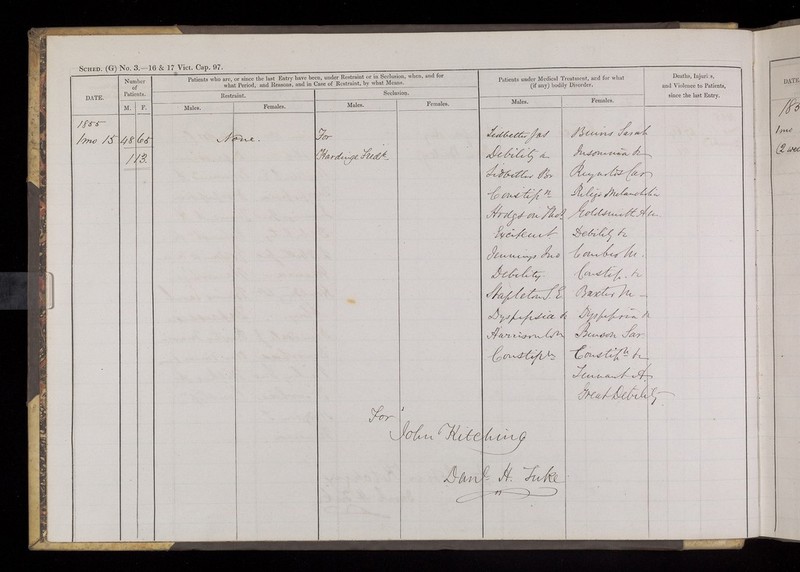 SCHED. (G) No. 3.—16 & 17 Vict. Cap. 97.
DATE.
Number of Patients.
M. F.
Patients who are, or since the last Entry have been, under Restraint or in Seclusion, when, and for what Period, and Reasons, and in Case of Restraint, by what Means.
Restraint.
Males. Females.
Seclusion.
Males. Females.
Patients under Medical Treatment, and for what (if any) bodily Disorder.
Males. Females.
Deaths, Injuries, and Violence to Patients, since the last Entry.
1855
1mo 15 48 65 None. For Ledbetter Jas Binns Sarah
113 Hardinge Fredk. Debility &c Insomnia &c
Ledbetter Reynolds Car
Constipn Religs Melancholia
Hodgson Thos Goldsmith Ann
Excitement Debility &c
Jennings Jno Comber M.
Debility Constip. &c
Stapleton S. E. Baxter M
Dyspepsia &c Dyspepsia &c
Harrison Benson Sar
Constipn Constipn &c
Tennant A
Great Debility
For
John Kitching
Danl. H. Tuke
DATE.
185
1mo
(2 wee